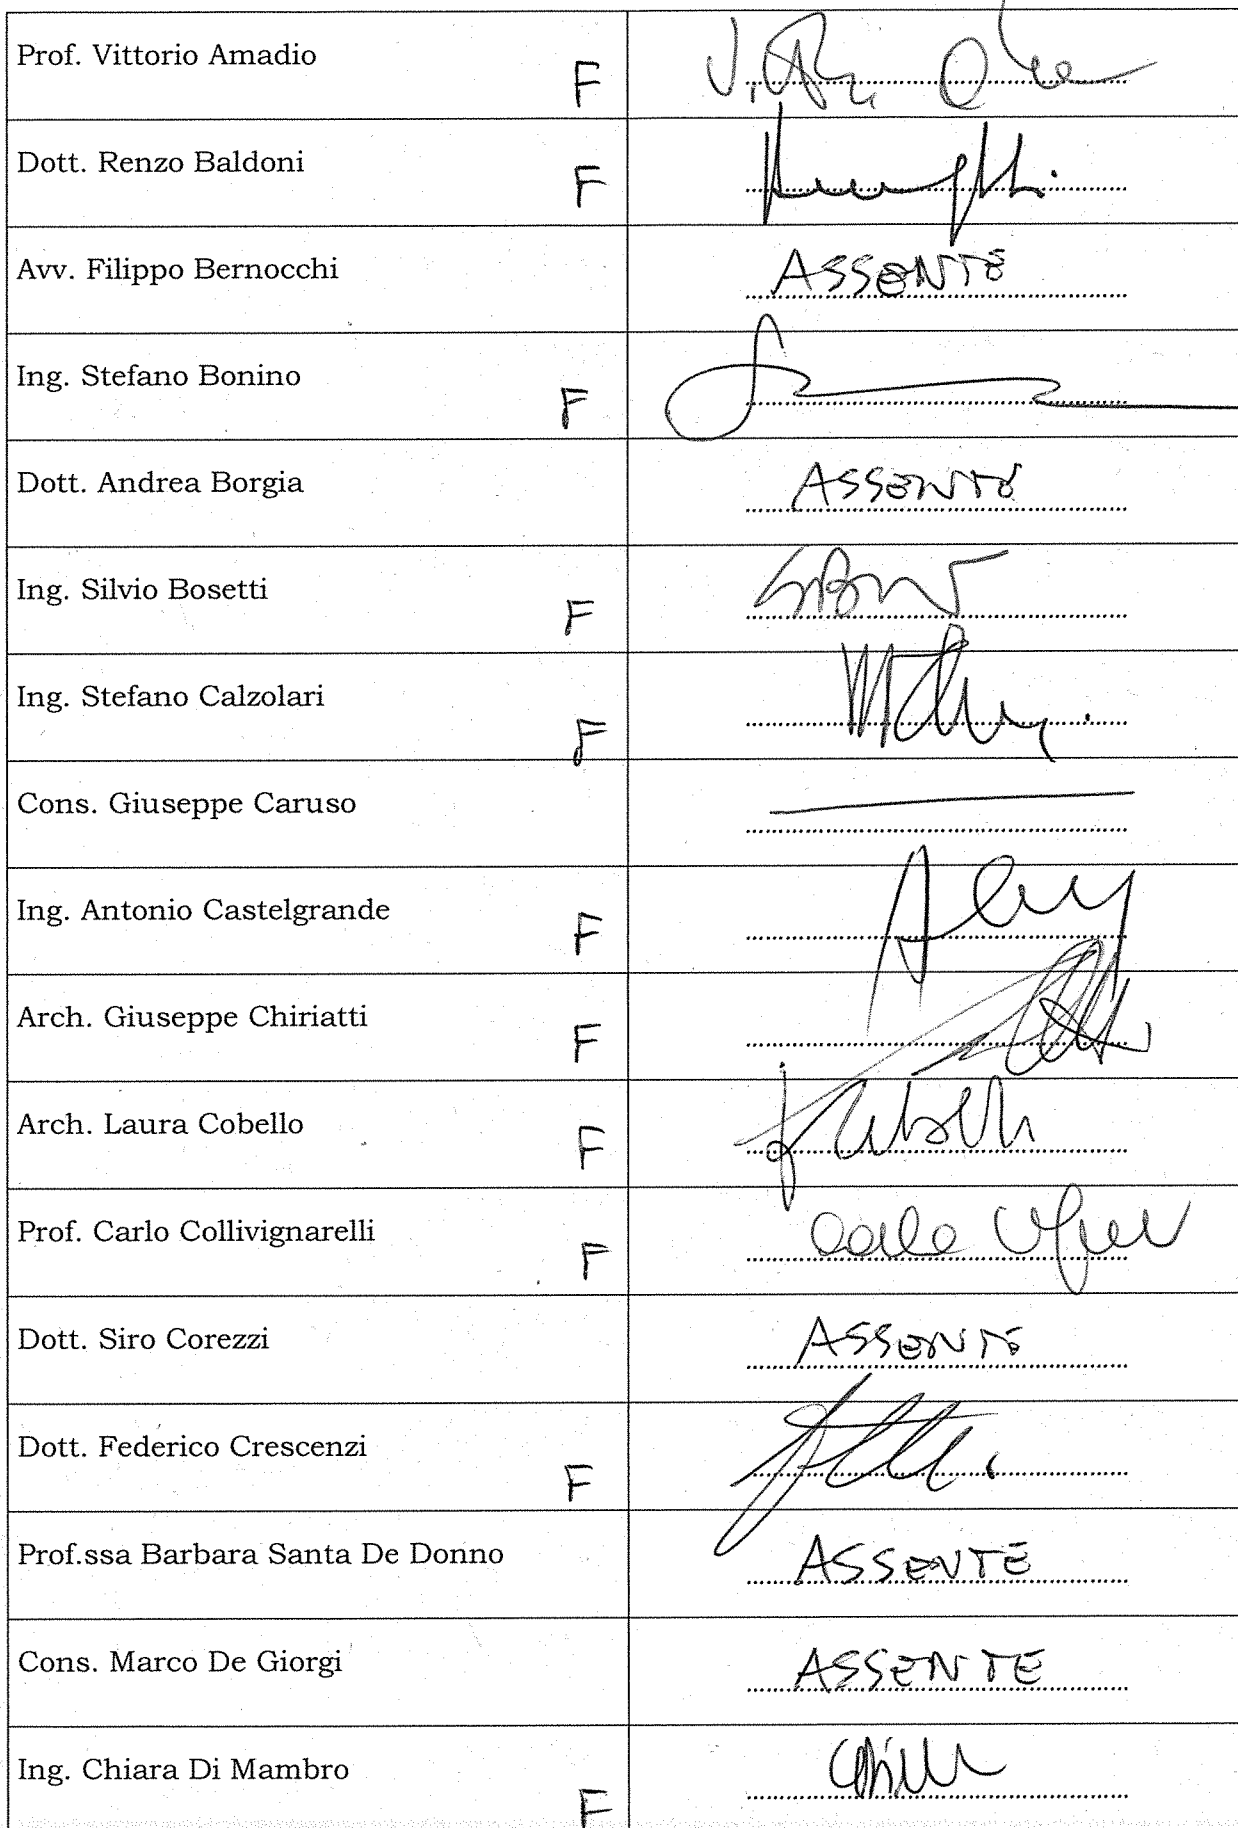 Prof. Vittorio Amadio F
Dott. Renzo Baldoni F
Avv. Filippo Bernocchi ASSENTE
Ing. Stefano Bonino F
Dott. Andrea Borgia ASSENTE
Ing. Silvio Bosetti F
Ing. Stefano Calzolari F
Cons. Giuseppe Caruso
Ing. Antonio Castelgrande F
Arch. Giuseppe Chiriatti F
Arch. Laura Cobello F
Prof. Carlo Collivignarelli F
Dott. Siro Corezzi ASSENTE
Dott. Federico Crescenzi F
Prof.ssa Barbara Santa De Donno ASSENTE
Cons. Marco De Giorgi ASSENTE
Ing. Chiara Di Mambro F